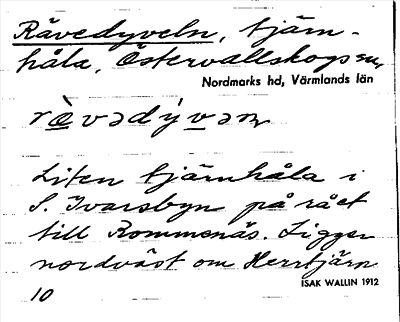 Rävedyveln, tjärn-
håla, Östervallskogs sn,
Nordmarks hd, Värmlands län
rävədývəɳ
Liten tjärnhåla i
S. Ivarsbyn på rået
till Rommenäs. Ligger
nordväst om Herrtjärn
ISAK WALLIN 1912
10